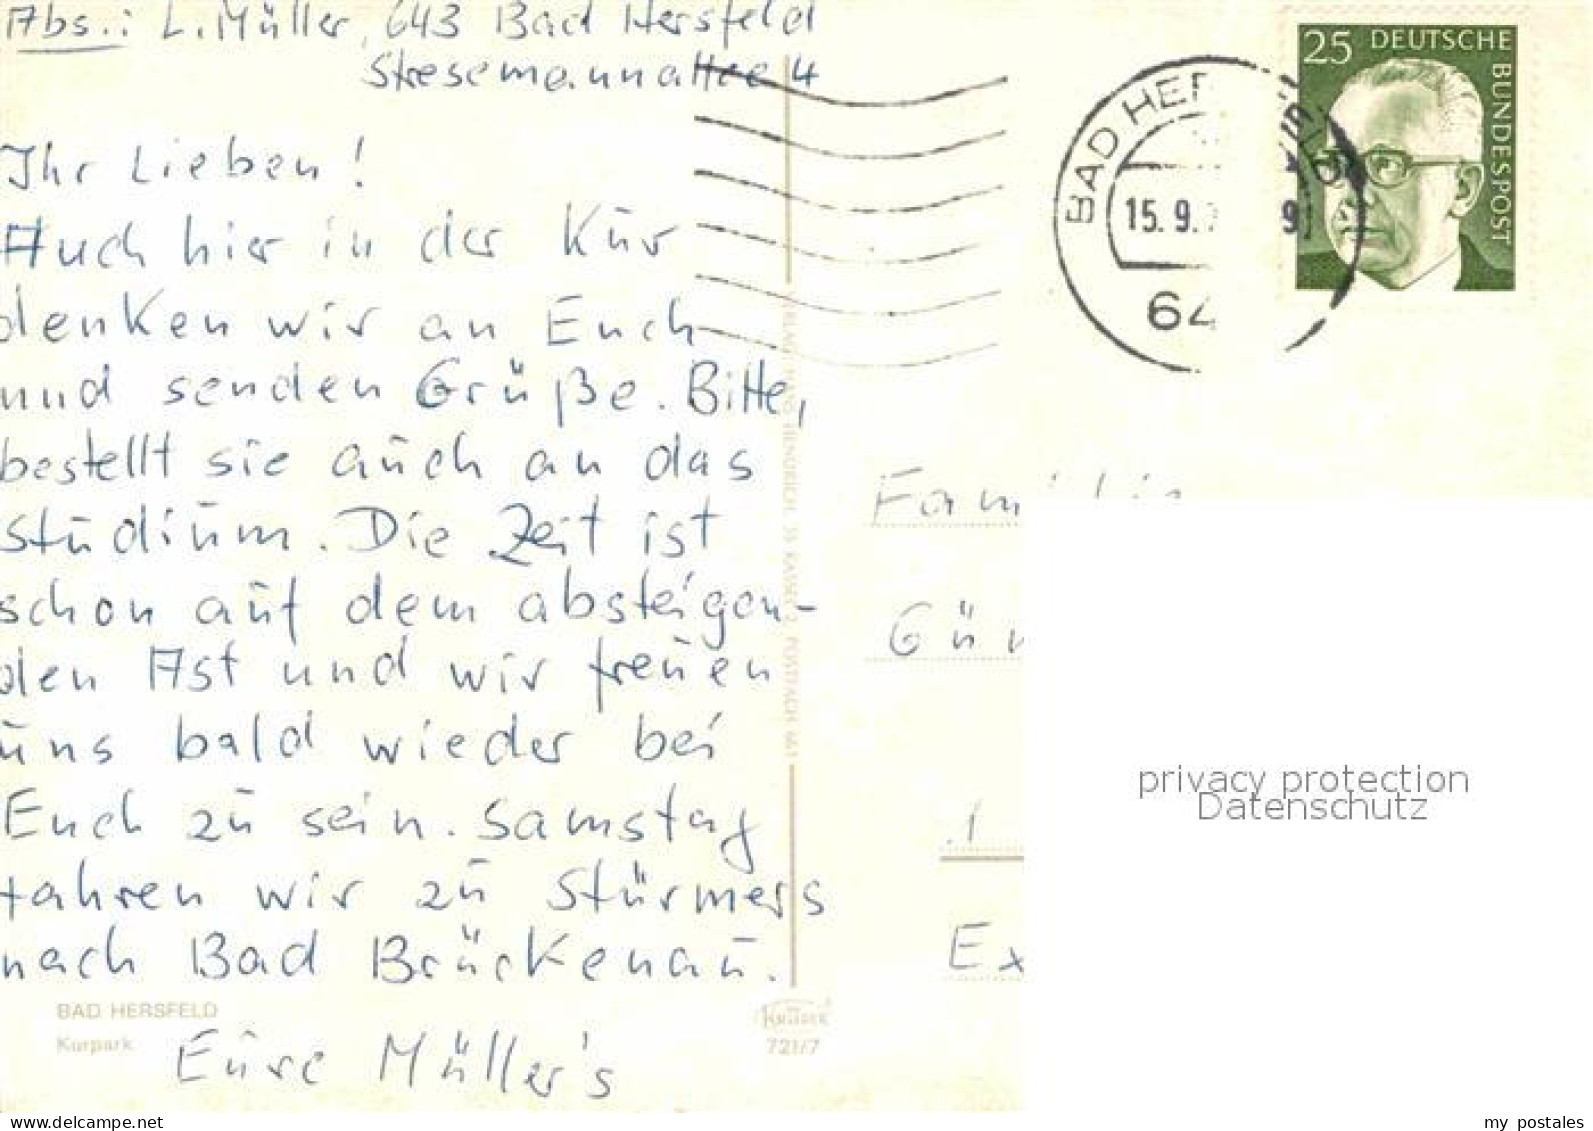 Abs.: L. Müller, 643 Bad Hersfeld
Stresemannallee 4
Ihr Lieben!
Auch hier in der Kur
denken wir an Euch
und senden Grüße. Bitte,
bestellt sie auch an das
Studium. Die Zeit ist
schon auf dem absteigen-
den Ast und wir freuen
uns bald wieder bei
Euch zu sein. Samstag
fahren wir zu Stürmers
nach Bad Brückenau.
Eure Müller's
BAD HERSFELD
Kurpark
KRÜGER
721/7
25 DEUTSCHE
BUNDESPOST
BAD HERSFELD
15.9.
64
Familie
Gün
Ex
privacy protection
Datenschutz
www.delcampe.net
my postales